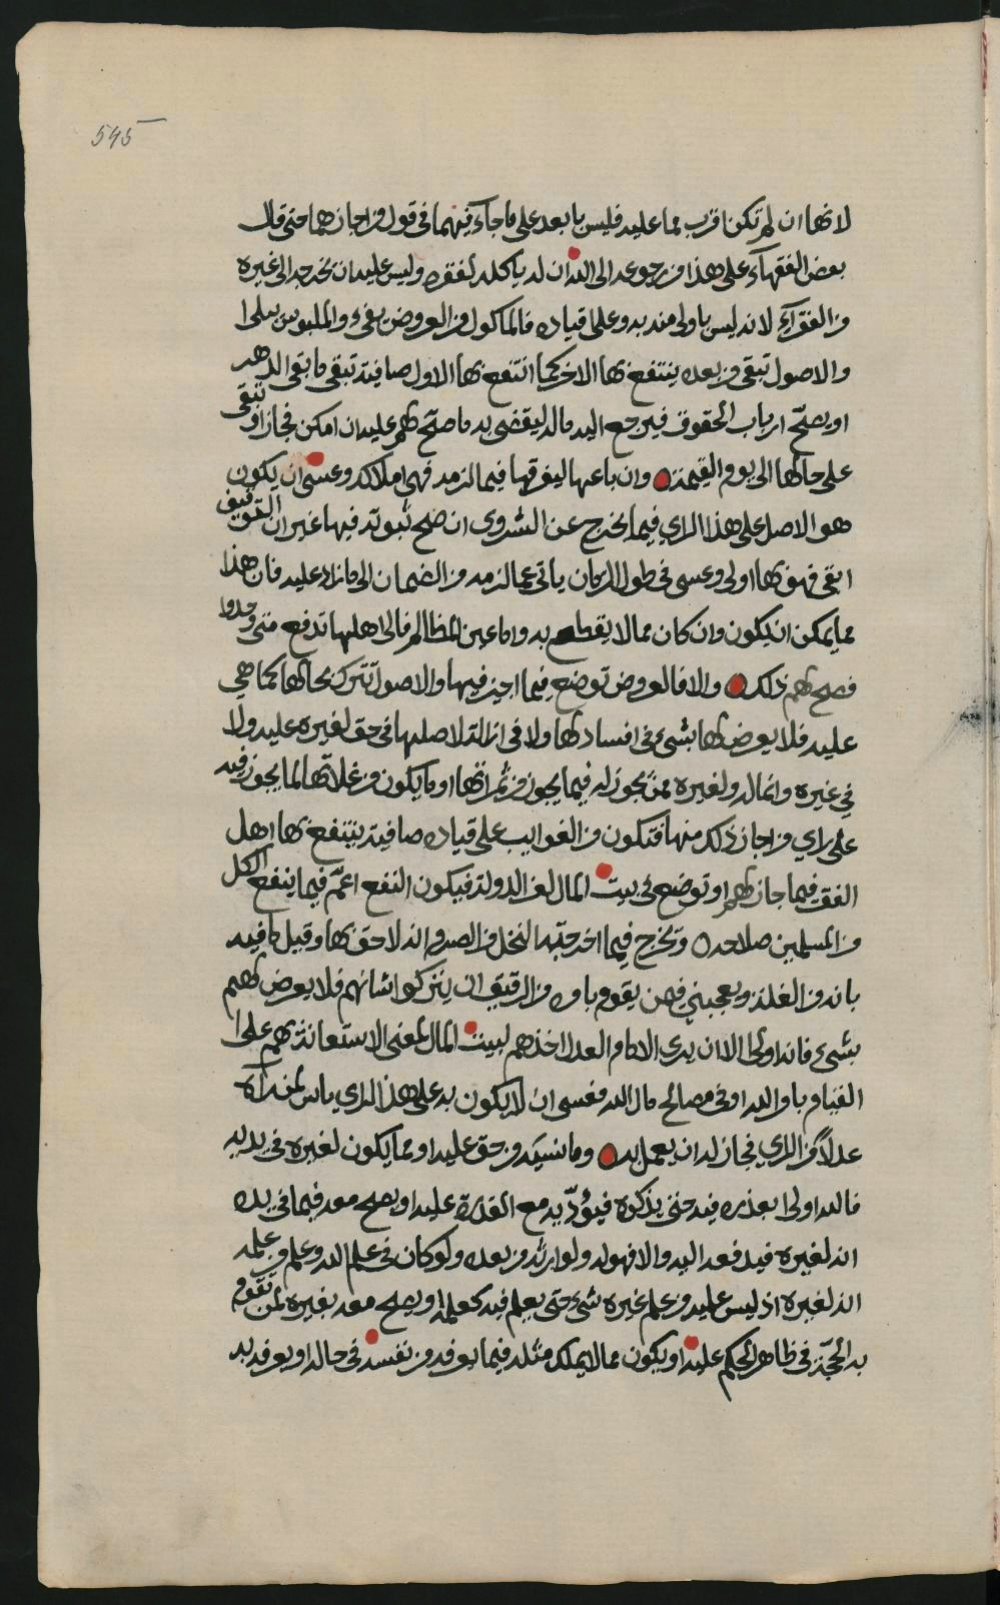 545
لانها ان لم تكن اقرب مما عليه فليس بابعد على ما جاء فيهما في قول من اجازهما حتى قال
بعض الفقهاء على هذا من رجوعه الى الله ان له ياكله لفقره وليس عليه ان يخرجه الى غيره
من الفقراء لانه ليس باولى منه به وعلى قياده فالماكول من العروض يفنى والملبوس يبلى
والاصول تبقى من بعده ينتفع بها الاخر كما انتفع بها الاول صافية تبقى ما بقي الدهر
او يصح ارباب الحقوق فيرجع اليه ماله ليقضي به ما صح لهم عليه ان امكن فجاز او تبقى
على حالها الى يوم القيمة وان باعها ليفرقها فيما لزمه فهي املاكه وعسى ان يكون
هو الاصل على هذا الراي فيما يخرج عن الشروى ان صح ثبوته فيها غير ان التوقيف
ابقى فهو بها اولى وعسى في طول الزمان ياتي عما لزمه من الضمان الى ما زاد عليه فان هذا
مما يمكن ان يكون وان كان مما لا يقطع به واما عين المظالم فالى اهلها تدفع متى وجدوا
فصح لهم ذلك والا فالعروض توضع فيما اجيز فيها والاصول تترك بحالها كما هي
عليه فلا يعرض لها بشيء في افسادها ولا في ازالة لاصلها في حق لغيره عليه ولا
في غيره وانما له ولغيره ممن يجوز له فيما يجوز من ثمراتها او ما يكون من غلاتها لما يجوز فيه
على راي من اجاز ذلك منها فتكون من الغوايب على قياده صافية ينتفع بها اهل
الفقر فيما جاز لهم او توضع في بيت المال لعز الدولة فيكون النفع اعم فيما ينفع الكل
من المسلمين صلاحه ويخرج فيما اخرجته النخل من الصرم انه لاحق بها وقيل ما فيه
بانه من الغلة ويعجبني فمن يقوم بامره من الرقيق ان يتركوا شانهم فلا يعرض لهم
بشيء فانه اولى الا ان يرى الامام العدل اخذهم لبيت المال لمعنى الاستعانة بهم على
القيام بامر الله او في مصالح مال الله فعسى ان لا يكون به على هذا الراي باس لمن رآه
عدلا من الراي فجاز له ان يعمل به وما نسيه من حق عليه او مما يكون لغيره في يديه
فالله اولى بعذره فيه حتى يذكره فيؤديه مع القدرة عليه او يصح معه فيما في يده
انه لغيره فيدفعه اليه والا فهو له ولوارثه من بعده ولو كان في علم الله وعلم من علمه
انه لغيره اذ ليس عليه من علم غيره شيء حتى يعلم فيه كعلمه او يصح معه بغيره لمن تقوم
به الحجة في ظاهر الحكم عليه او يكون مما لا يملك مثله فيما يعرفه من نفسه في حاله او يعرفه به